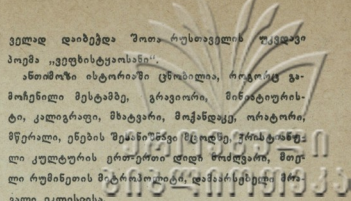 ველად დაიბეჭდა შოთა რუსთაველის უკვდავი
პოემა „ვეფხისტყაოსანი“.
ანთიმოზი ისტორიაში ცნობილია, როგორც გა-
მოჩენილი მესტამბე, გრავიორი, მინიატიურის-
ტი, კალიგრაფი, მხატვარი, მოქანდაკე, ორატორი,
მწერალი, ენების შესანიშნავი მცოდნე, ქრისტიანუ-
ლი კულტურის ერთ-ერთი დიდი მოძღვარი, მთე-
ლი რუმინეთის მეტროპოლიტი, დამაარსებელი მრა-
ვალი ეკლესიისა
ეროვნული
ბიბლიოთეკა